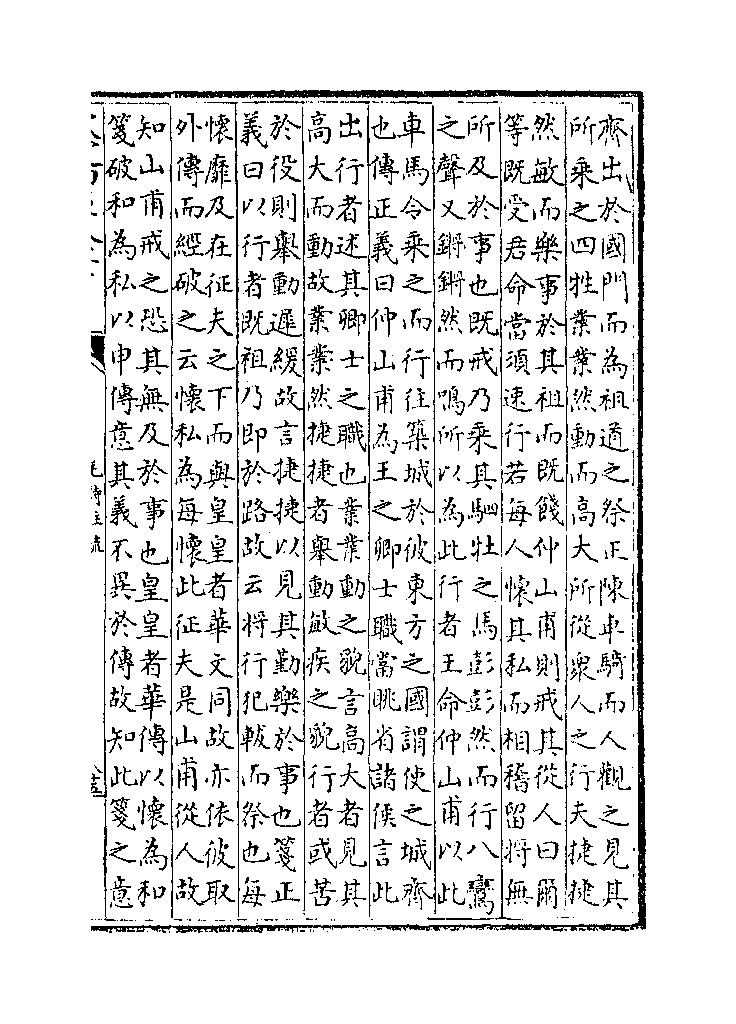 齊出於國門而為祖道之祭正陳車騎而人觀之見其
所乘之四牲業業然動而高大所從衆人之行夫捷捷
然敏而樂事於其祖而既餞仲山甫則戒其從人曰爾
等既受君命當須速行若每人懷其私而相稽留將無
所及於事也既戒乃乘其駟牡之馬彭彭然而行八鸞
之聲又鏘鏘然而鳴所以為此行者王命仲山甫以此
車馬令乘之而行往築城於彼東方之國謂使之城齊
也傳正義曰仲山甫為王之卿士職當眺省諸侯言此
出行者述其卿士之職也業業動之貌言高大者見其
高大而動故業業然捷捷者舉動敏疾之貌行者或苦
於役則舉動遲緩故言捷捷以見其勤樂於事也箋正
義曰以行者既祖乃即於路故云將行犯軷而祭也每
懷靡及在征夫之下而與皇皇者華文同故亦依彼取
外傳而經破之云懷私為每懷此征夫是山甫從人故
知山甫戒之恐其無及於事也皇皇者華傳以懷為和
箋破和為私以申傳意其義不異於傳故知此箋之意
毛詩注疏